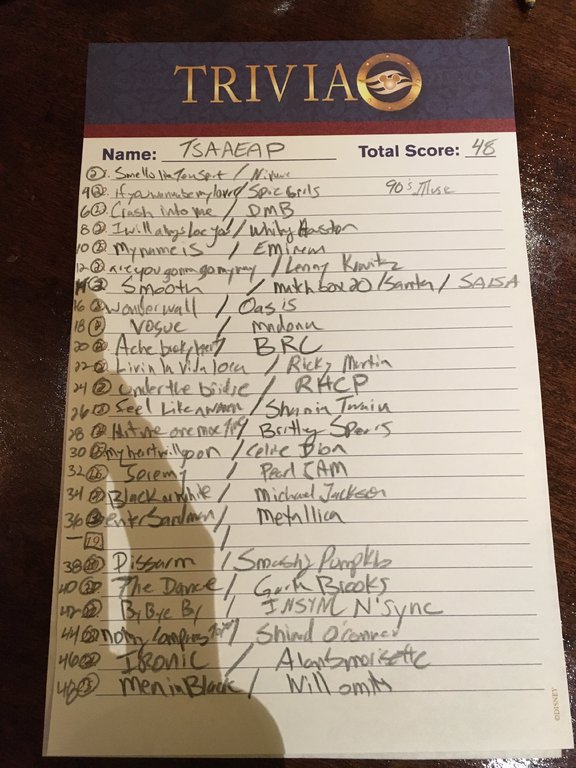 TRIVIA
Name: TSAAEAP Total Score: 48
2 1. Smells like Teen Spirt / Nirvana
4 2 if you wannabe my lover / Spice Girls 90's Music
6 Crash into me / DMB
8 I will always Love you / Whitny Houston
10 My name is / Eminem
12 Are you gonna go my way / Lenny Kravitz
14 Smooth / matchbox 20 / Santa / SALSA
16 wonderwall / Oasis
18 VOGUE / madona
20 Ache breaky heart / BRC
22 Livin la Vida loca / Ricky Martin
24 under the bridge / RHCP
26 feel Like a woman / Shania Twain
28 Hit me one more / Britney Spears
30 my heart will go on / Celine Dion
32 Jeremy / Pearl JAM
34 Black or white / Michael Jackson
36 enter Sandman / Metallica
- 19 /
38 Dissarm / Smashing Pumpkins
40 The Dance / Garth Brooks
42 By Bye By / N'Sync
44 / O'conner
46 IRONIC / Alanis morisette
48 Men in Black / Will
©DISNEY